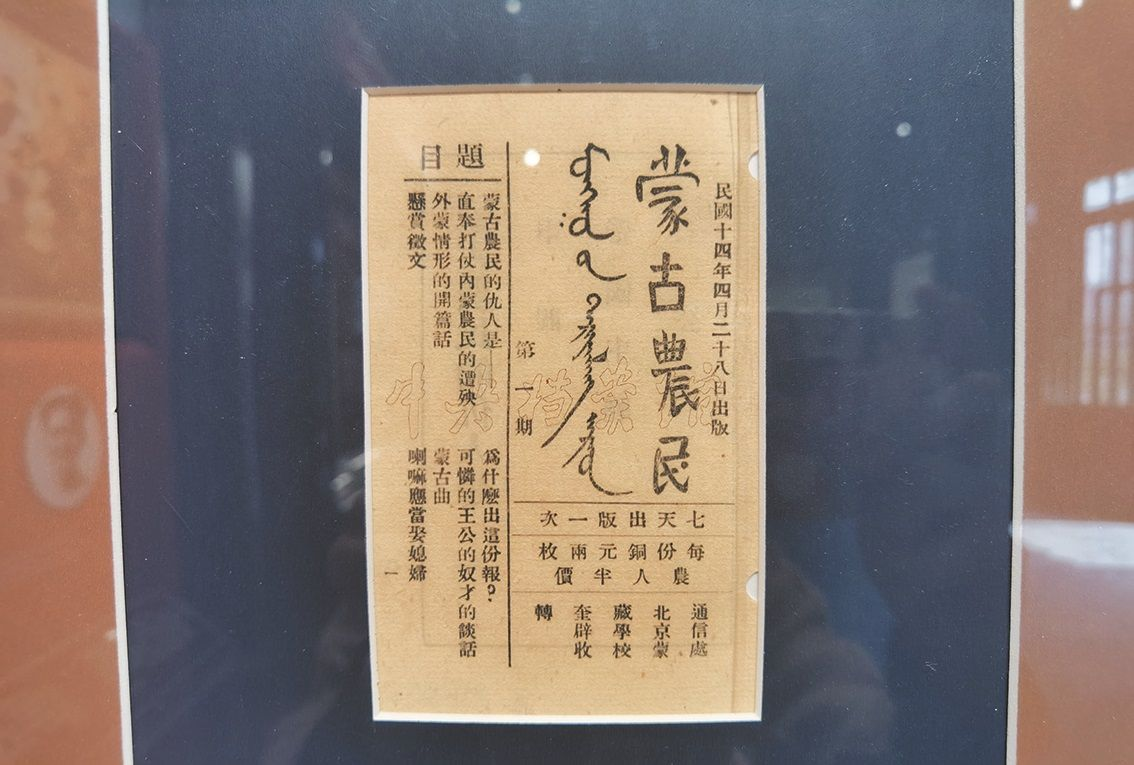 民國十四年四月二十八日出版
蒙古農民
七天出版一次
每份銅元兩枚
農人半價
通信處
北京蒙
藏學校
奎璧收
轉
第一期
題目
蒙古農民的仇人是——
爲什麽出這份報?
直奉打仗內蒙農民的遭殃
可憐的王公的奴才的談話
外蒙情形的開篇話
蒙古曲
懸賞徵文
喇嘛應當娶媳婦
一
中央档案馆